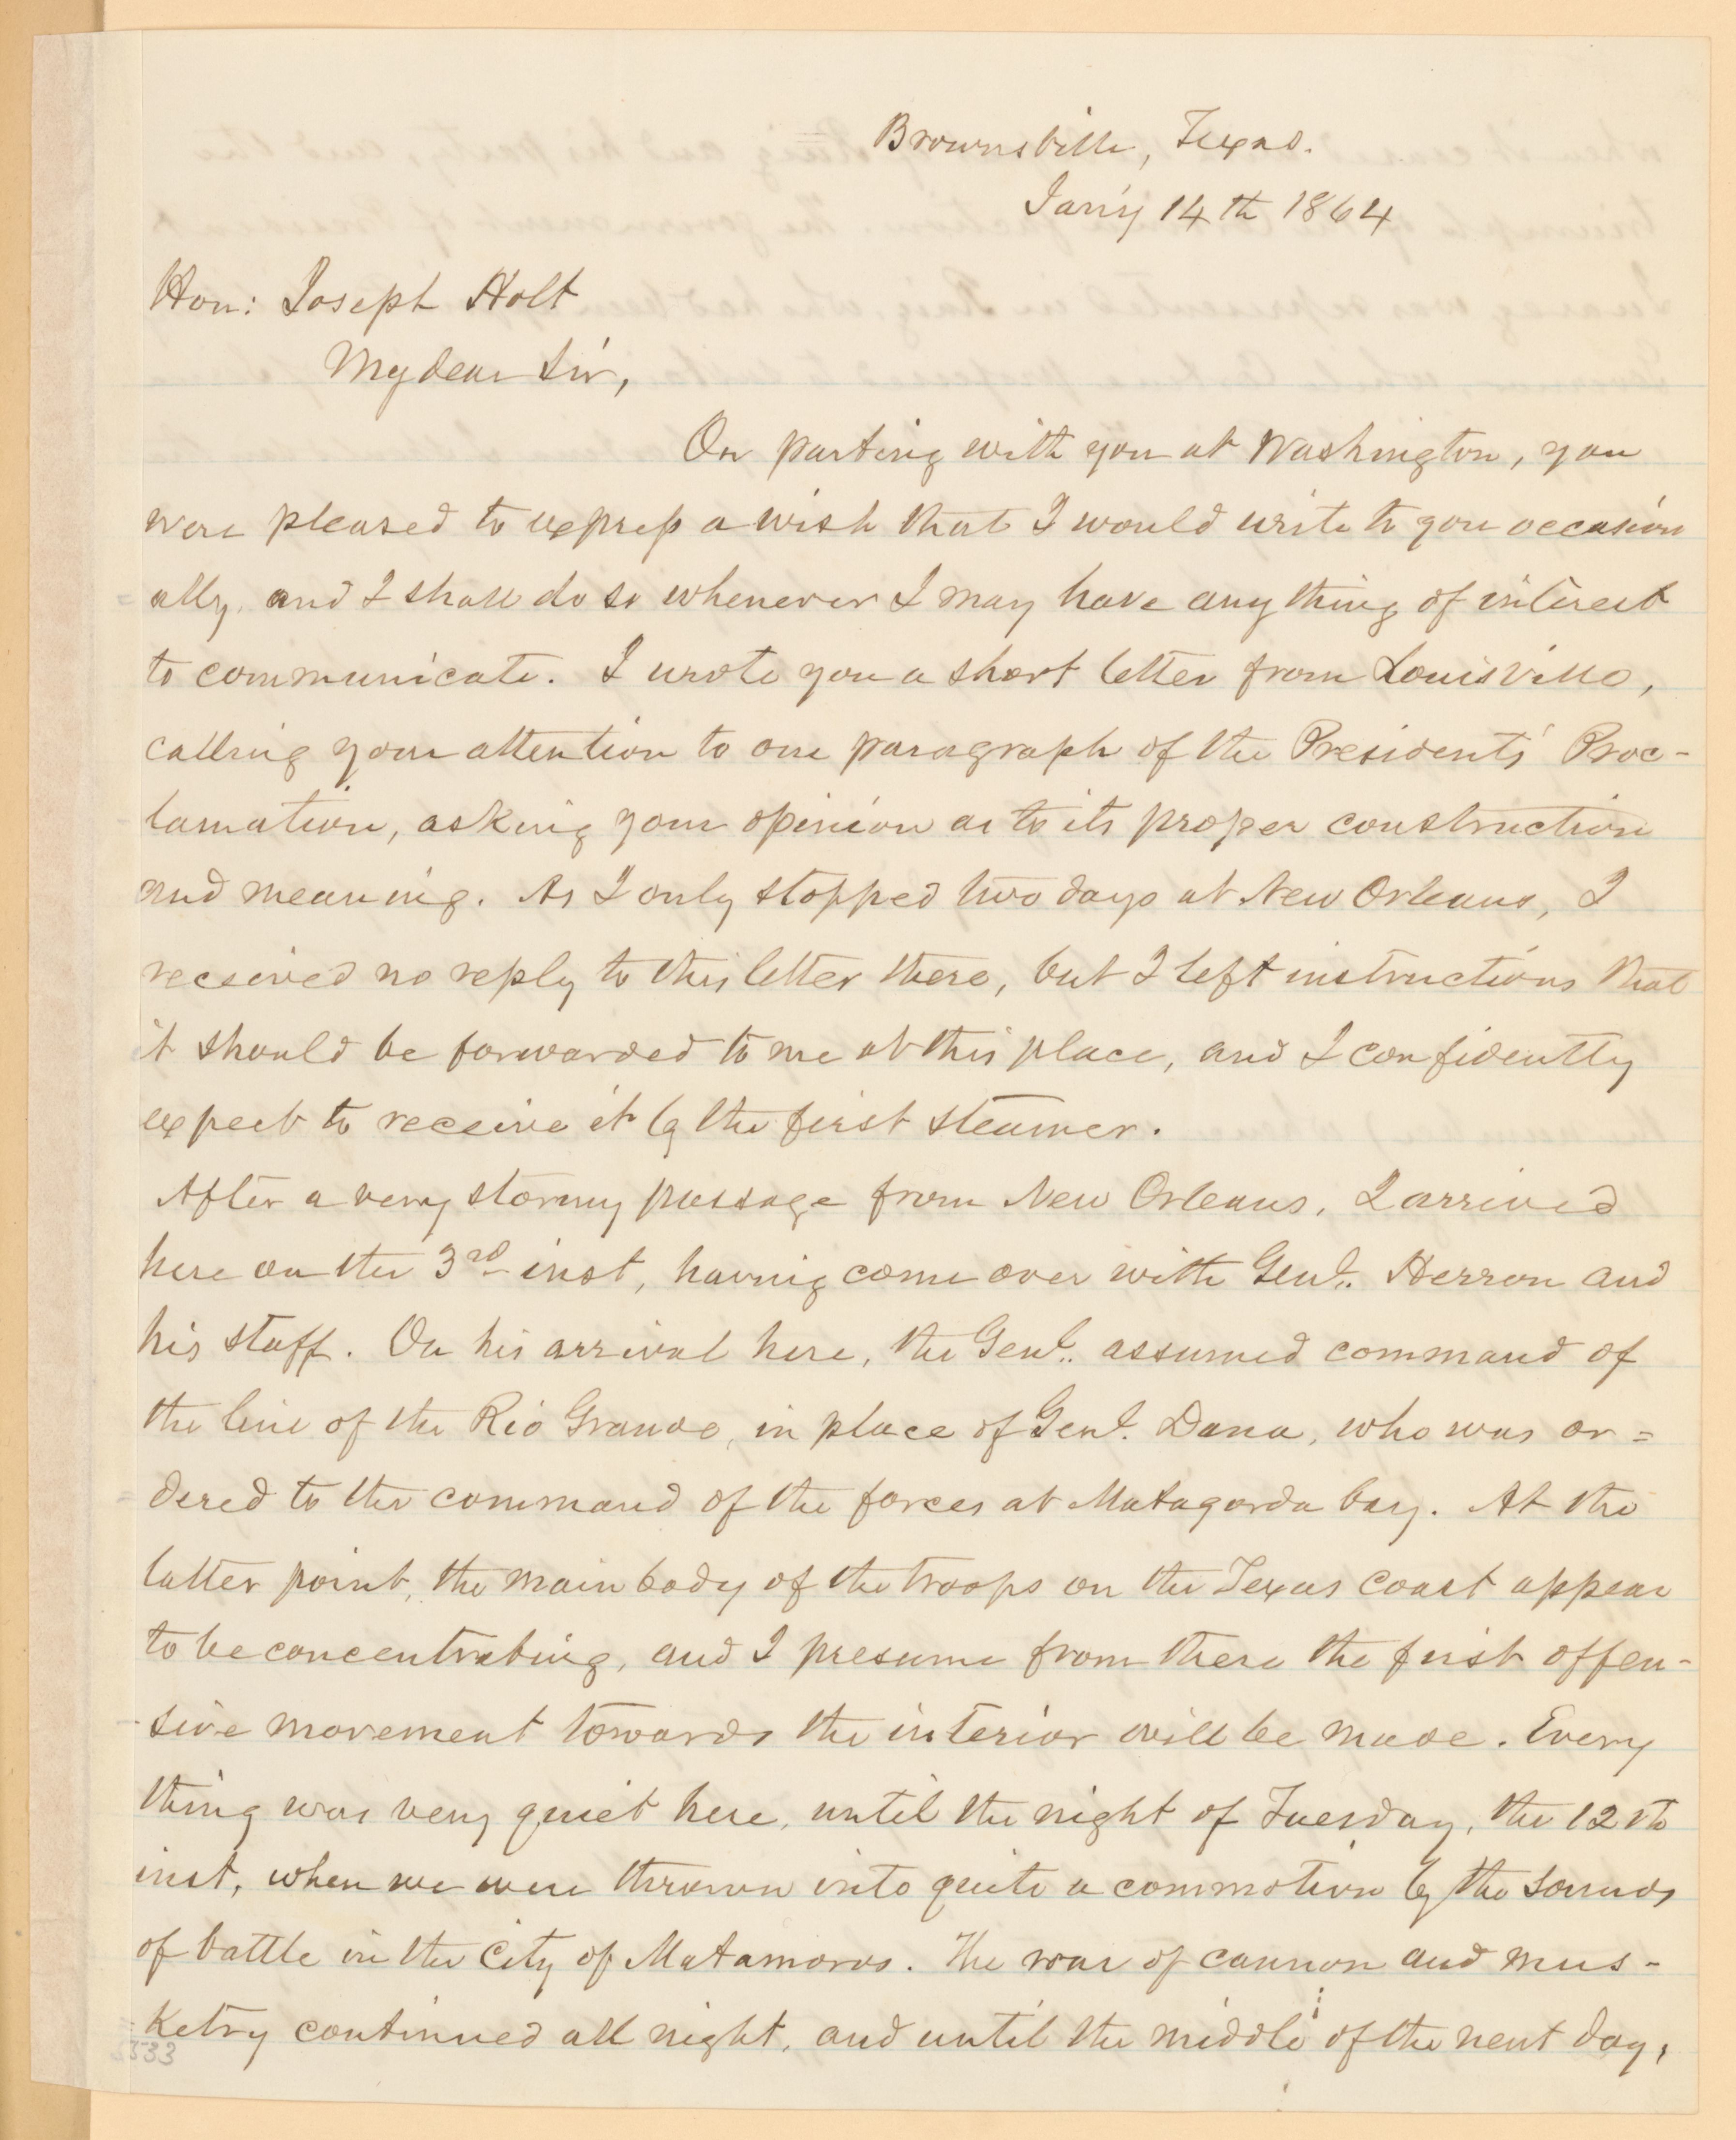 Brownsville, Texas.
Jan'y 14th 1864
Hon: Joseph Holt
My dear Sir,
On parting with you at Washington, you
were pleased to express a wish that I would write to you occasion
=ally, and I shall do so whenever I may have any thing of interest
to communicate. I wrote you a short letter from Louisville,
calling your attention to one paragraph of the Presidents' Proc-
lamation, asking your opinion as to its proper construction
and meaning. As I only stopped two days at New Orleans, I
received no reply to this letter there, but I left instructions that
it should be forwarded to me at this place, and I confidently
expect to receive it by the first steamer.
After a very stormy passage from New Orleans, I arrived
here on the 3rd inst, having come over with Genl. Herron and
his staff. On his arrival here, the Genl. assumed command of
the line of the Rio Grande, in place of Genl. Dana, who was or=
=dered to the command of the forces at Matagorda bay. At the
latter point, the main body of the troops on the Texas coast appear
to be concentrating, and I presume from there the first offen-
-sive movement towards the interior will be made. Every
thing was very quiet here, until the night of Tuesday, the 12th
inst, when we were thrown into quite a commotion by the sounds
of battle in the City of Matamoros. The roar of cannon and mus-
=ketry continued all night, and until the middle of the next day,
3533